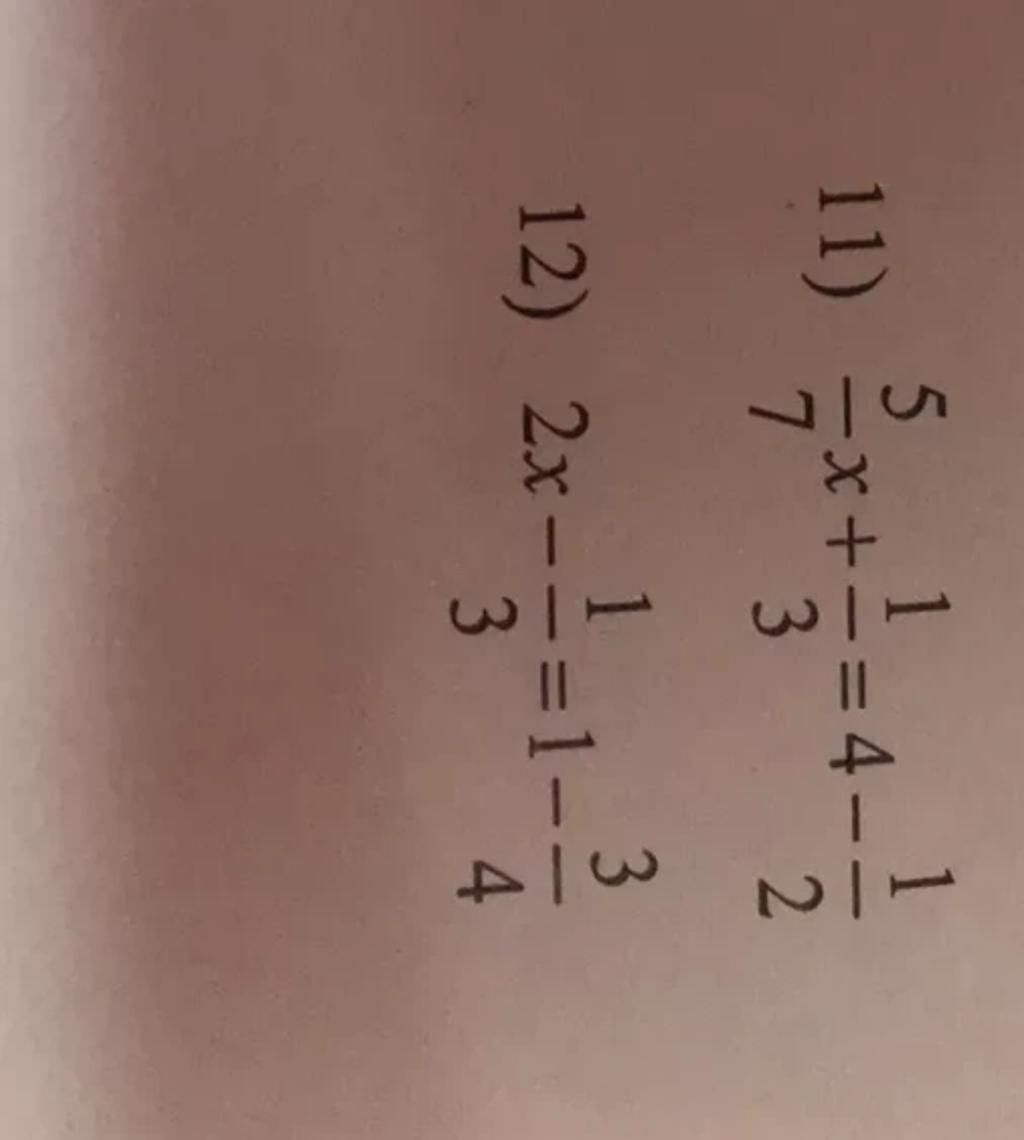 11) 5/7 x + 1/3 = 4 - 1/2
12) 2x - 1/3 = 1 - 3/4